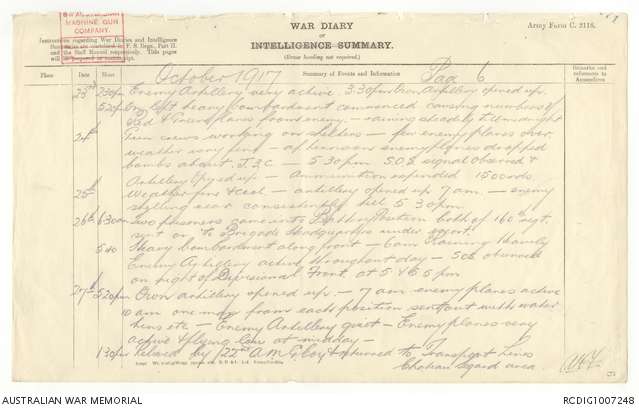 8TH AUSTRALIAN
MACHINE GUN
COMPANY.
WAR DIARY
OF
INTELLIGENCE SUMMARY.
(Erase heading not required.)
Army Form C. 2118.
Instructions regarding War Diaries and Intelligence
Summaries are contained in F. S. Regs., Part II.
and the Staff Manual respectively. Title pages
will be prepared in manuscript.
Place Date Hour Summary of Events and Information Remarks and references to Appendices
October 1917 Page 6
23rd 2.30pm Enemy Artillery very active. 3.30pm Own Artillery opened up.
5.20pm On left heavy bombardment commenced causing numbers of
Red & Green flares from enemy — raining steadily to midnight
24th Gun crews working on shelters — few enemy planes over
weather very fine — afternoon enemy planes dropped
bombs about J.3.C. — 5.30pm S.O.S signal observed &
Artillery opened up — Ammunition expended 1500 rds.
25th Weather fine & cool — artillery opened up 7 am — enemy
shelling rear consistently till 5.30pm.
26th 6.30am Two prisoners came into Battery Position both of 160th Regt.
sent on to Brigade Headquarters under escort.
5.40 Heavy bombardment along front — 6am raining & heavily
Enemy Artillery active throughout day — SOS observed
on right of Divisional Front at 5 & 6.5 pm
27th 5.20pm Own artillery opened up — 7 am enemy planes active
am one man from each position sent out with water
tins etc — Enemy Artillery quiet — Enemy planes very
active & flying low at midday —
1.30pm Relieved by 22nd A.M.G. Coy & returned to Transport Lines
Chateau Segard area.